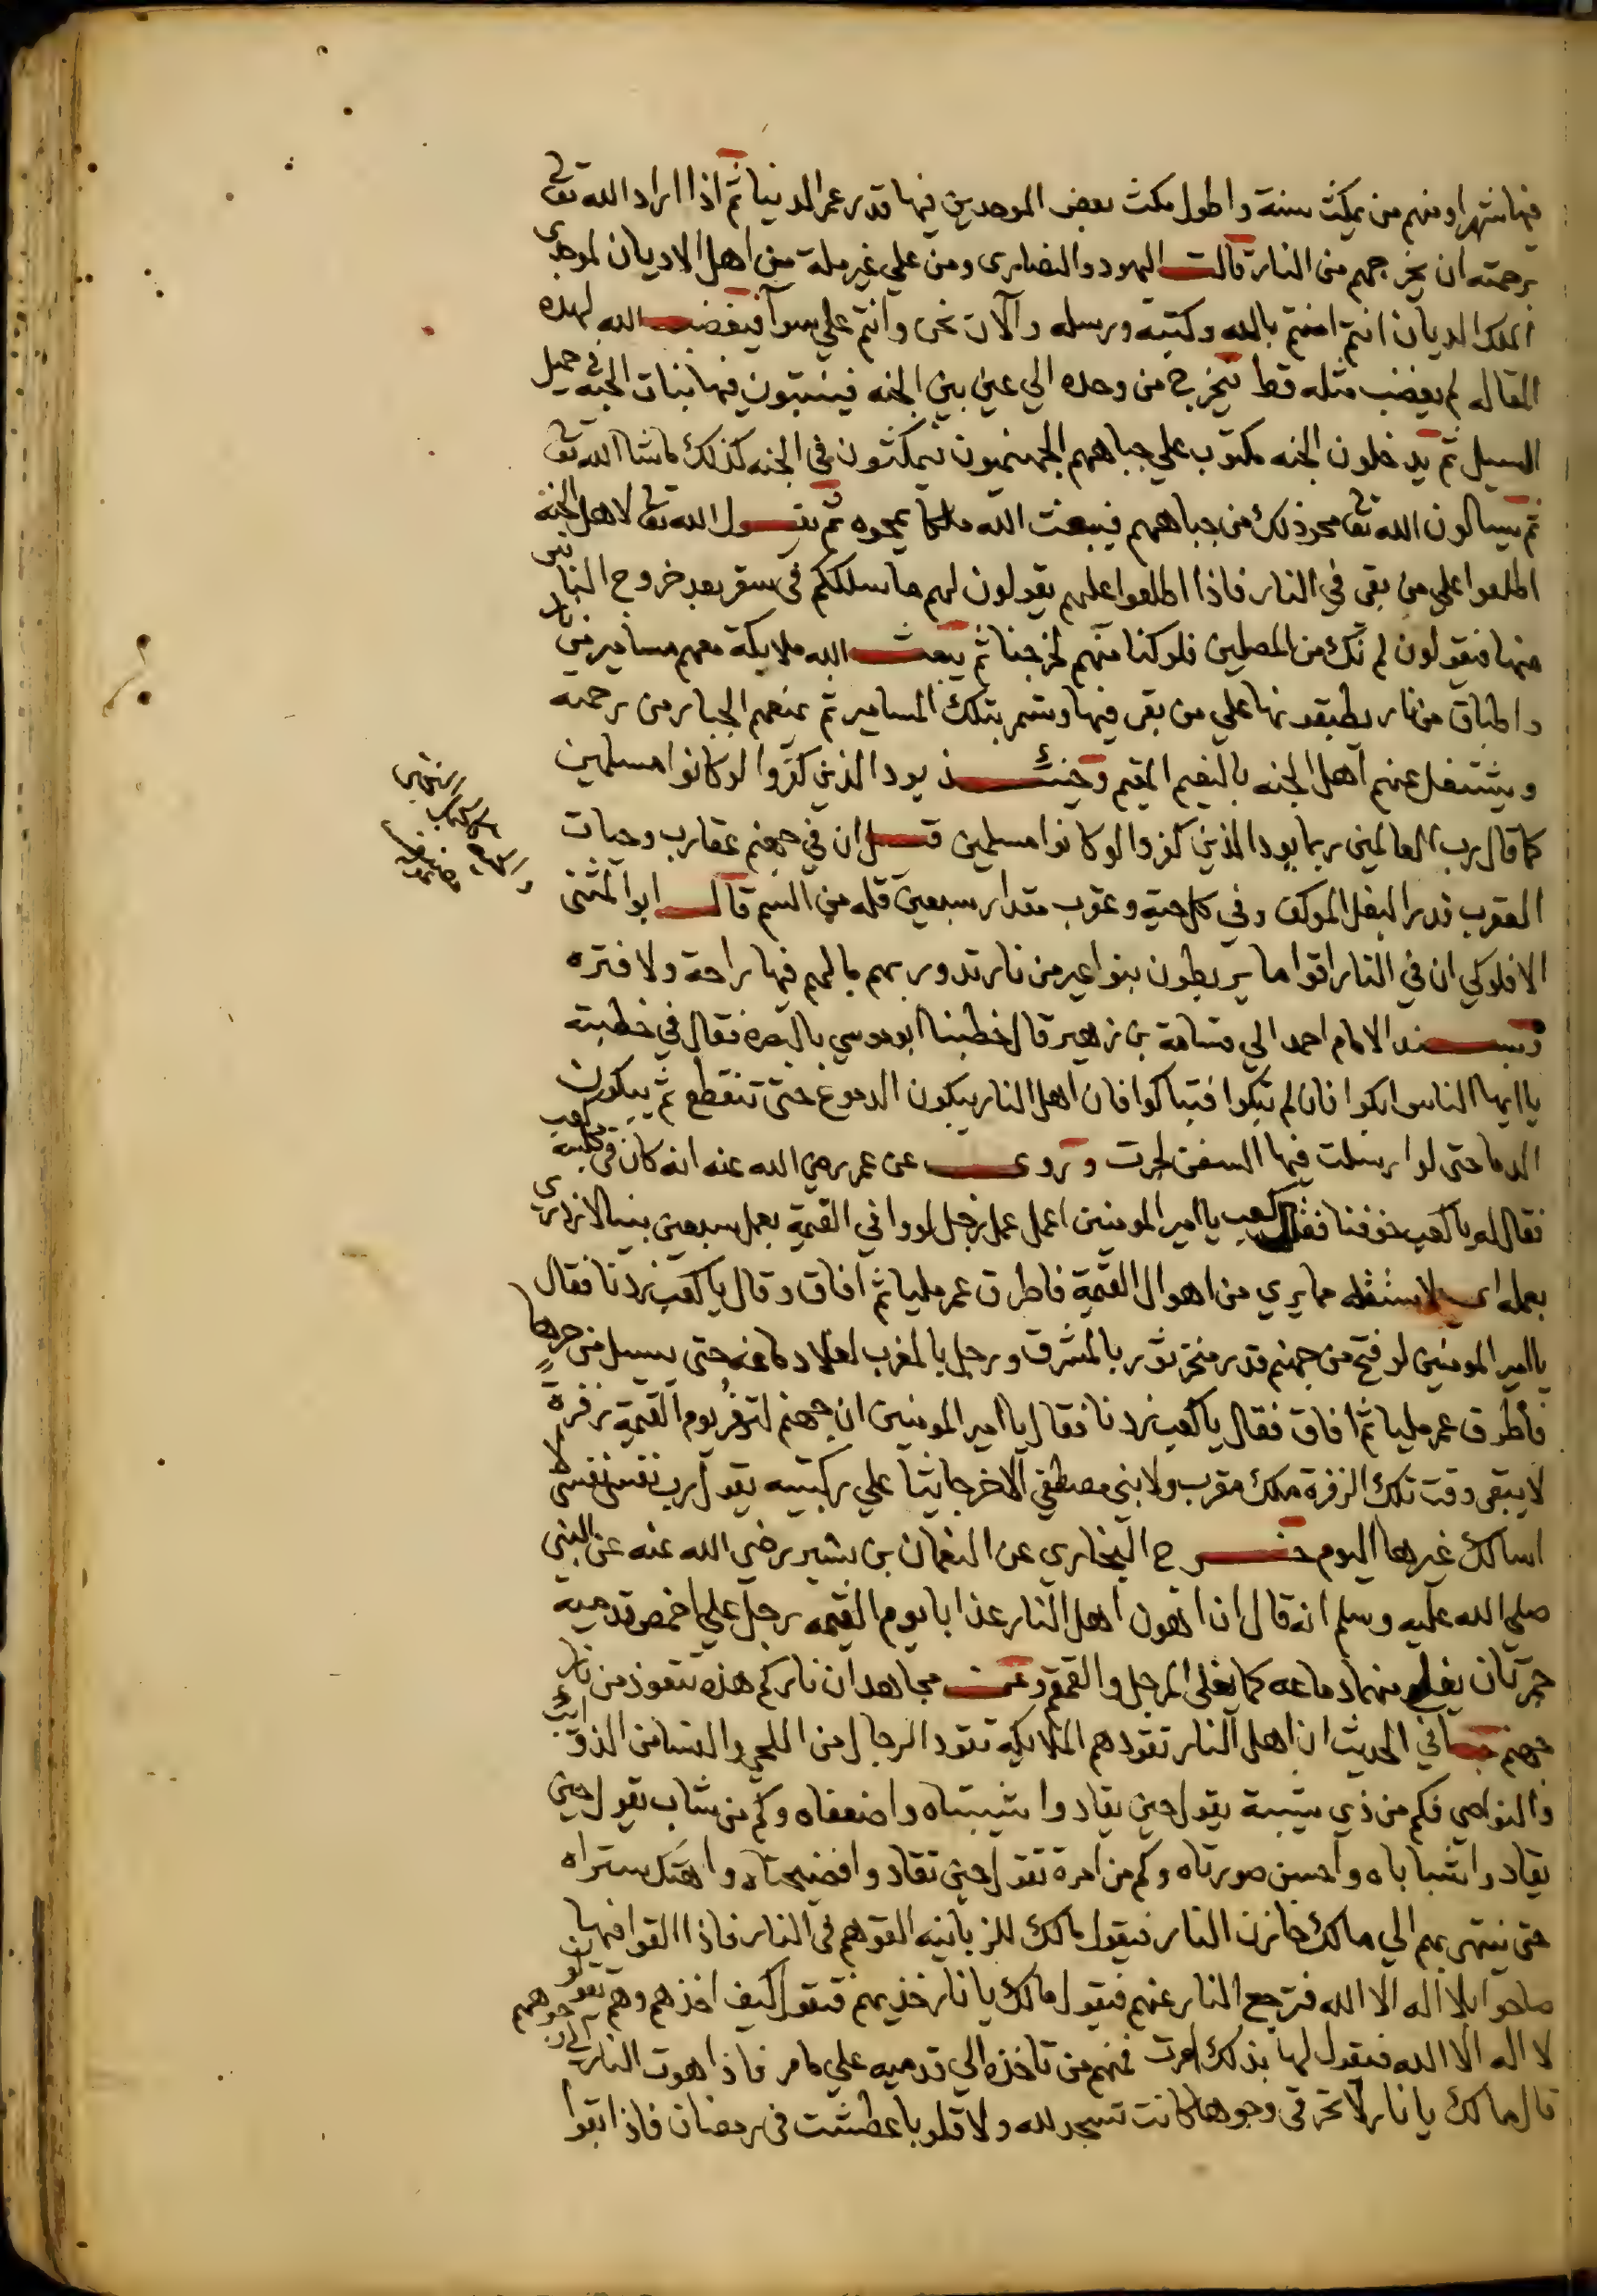 فيها شهرا ومنهم من يمكث سنة واطول مكث بعض الموحدين فيها قدر عمر الدنيا ثم اذا اراد الله تعالى
برحمته ان يخرجهم من النار قالت اليهود والنصارى ومن علي غير ملة من اهل الاديان لموحدي
الملك الديان انتم امنتم بالله وكتبه ورسله والآن نحن وانتم علي سوآ فيغضب الله لهذه
المقاله لم يغضب مثله قط فيخرج من وحده الي عين بين الجنه فينبتون فيها نبات الحبة في حميل
السيل ثم يدخلون الجنه مكتوب علي جباههم الجهنميون فيمكثون في الجنه كذلك ماشا الله تعالى
ثم يسالون الله تعالى محو ذلك من جباههم فيبعث الله ملكا يمحوه ثم يقول الله تعالى لاهل الجنة
اطلعوا علي من بقي في النار فاذا اطلعوا عليهم يقولون لهم ما سلككم في سقر بعد خروج الناس
منها فيقولون لم نك من المصلين فلو كنا منهم لخرجنا ثم يبعث الله ملايكة معهم مسامير من نار
واطباق من نار يطبقونها علي من بقي فيها وتسمر بتلك المسامير ثم يمنعهم الجبار من رحمته
ويشتغل عنهم اهل الجنه بالنعيم المقيم وحينئذ يود الذين كفروا لو كانوا مسلمين
كما قال رب العالمين ربما يود الذين كفروا لو كانوا مسلمين قيل ان في جهنم عقارب وحيات
العقرب قدر البغل الموكف وفي كل حية وعقرب مقدار سبعين قله من السم قال ابو المثنى
الافلوكي ان في النار اقواما يربطون بنواعير من نار تدور بهم مالهم فيها راحة ولا فتره
وبسند الامام احمد الي قسامة بن زهير قال خطبنا ابو موسي بالبصره فقال في خطبته
يا ايها الناس ابكوا فان لم تبكوا فتباكوا فان اهل النار يبكون الدموع حتى تنقطع ثم يبكون
الدما حتى لو ارسلت فيها السفن لجرت وروي عن عمر رضي الله عنه انه كان في مجلسه كعب
فقال له يا كعب خوفنا فقال كعب يا امير المومنين اعمل عمل رجل لو وافي القيمة بعمل سبعين نبيا لازدرى
بعمله اي لاستقله مما يري من اهوال القيمة فاطرق عمر مليا ثم افاق وقال يا كعب زدنا فقال
يا امير المومنين لو فتح من جهنم قدر منخر ثور بالمشرق ورجل بالمغرب لغلا دماغه حتى يسيل من حرها
فاطرق عمر مليا ثم افاق فقال يا كعب زدنا فقال يا امير المومنين ان جهنم لتزفر يوم القيمة زفرة
لا يبقى وقت تلك الزفرة ملك مقرب ولا نبي مصطفي الا خر جاثيا علي ركبتيه يقول رب نفسي نفسي لا
اسالك غيرها اليوم خرج البخاري عن النعمان بن بشير رضي الله عنه عن النبي
صلي الله عليه وسلم انه قال ان اهون اهل النار عذابا يوم القيمه رجل علي اخمص قدميه
جمرتان يغلي منهما دماغه كما يغلى المرجل والقمقم وعن مجاهد ان ناركم هذه تتعوذ من نار
جهنم جا في الحديث ان اهل النار تقودهم الملايكه تقود الرجال من اللحي والنسا من الذوائب
والنواصي فكم من ذي شيبة يقول حين يقاد وا شيبتاه واضعفاه وكم من شاب يقول حين
يقاد وا شباباه واحسن صورتاه وكم من امرة تقول حين تقاد وافضيحتاه واهتك ستراه
حتى ينتهى بهم الي مالك خازن النار فيقول مالك للزبانيه القوهم في النار فاذا القوا فيها
صاحوا بلا اله الا الله فترجع النار عنهم فيقول مالك يا نار خذيهم فتقول كيف اخذهم وهم يقولون
لا اله الا الله فيقول لها بذلك امرت فمنهم من تاخذه الي قدميه علي ما مر فاذا هوت النار الى وجوههم
قال مالك يا نار لا تحرقي وجوها كانت تسجد لله ولا قلوبا عطشت في رمضان فاذا بقوا